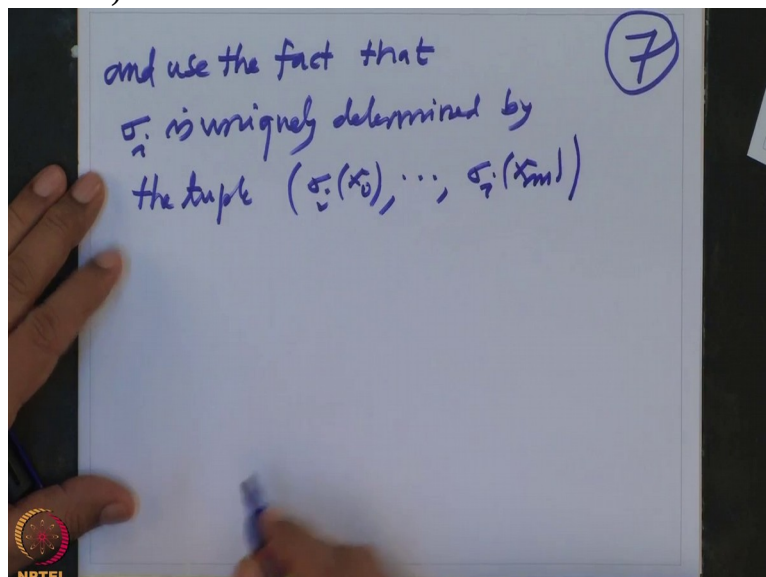 and use the fact that
7
σᵢ is uniquely determined by
the tuple (σᵢ(x₀), ..., σᵢ(xₘ))
NPTEL